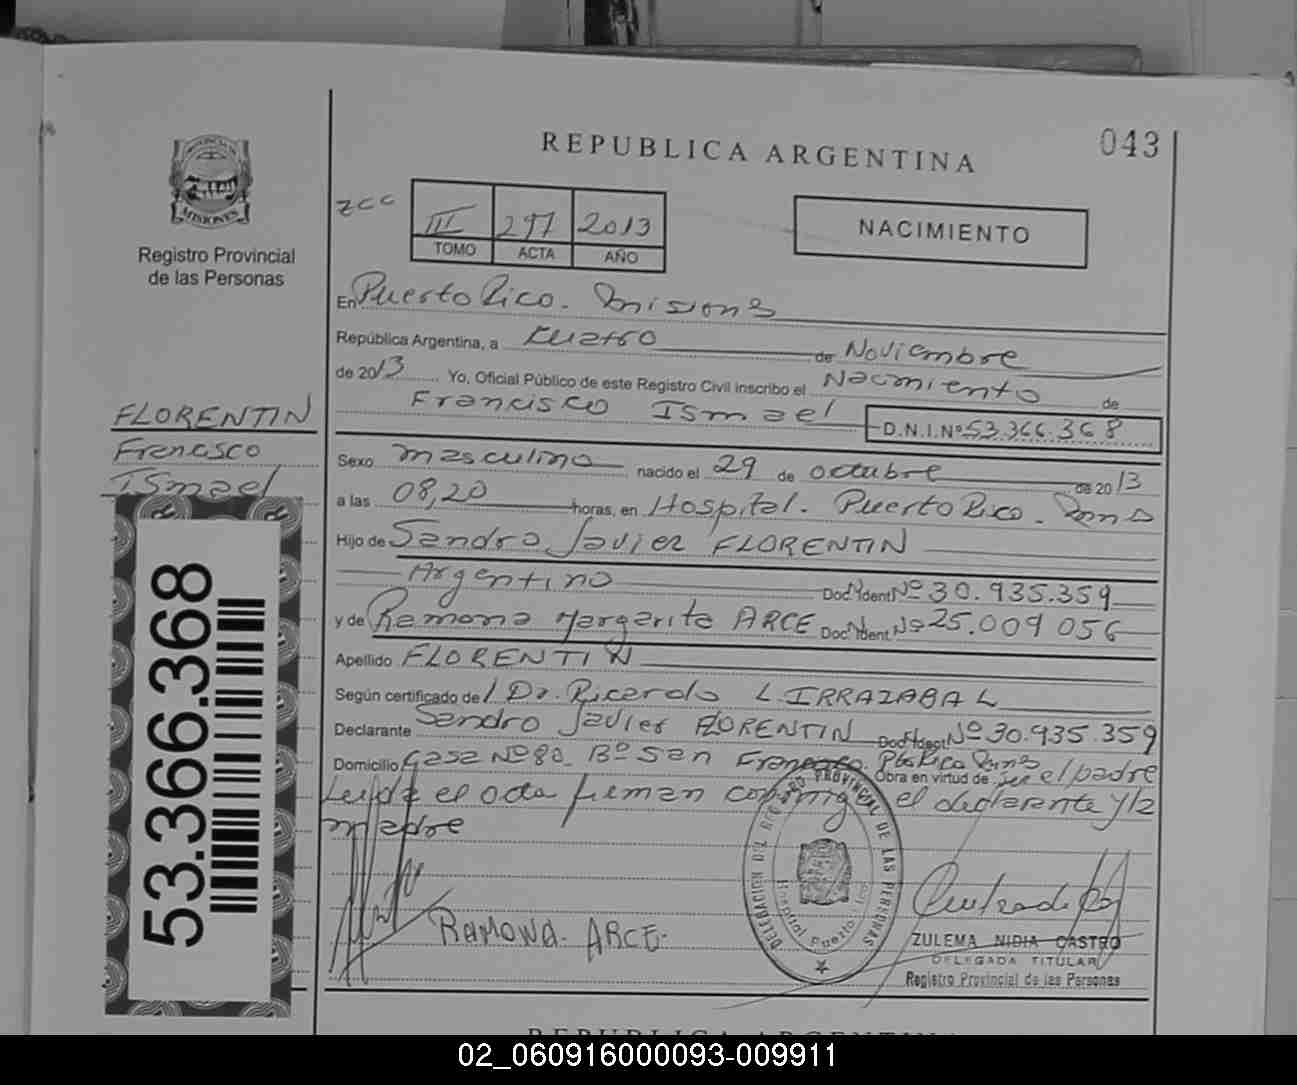 043
REPUBLICA ARGENTINA
PROVINCIA DE
MISIONES
Registro Provincial
de las Personas
zcc
III 297 2013
TOMO ACTA AÑO
NACIMIENTO
En Puerto Rico. Misiones
República Argentina, a cuatro de Noviembre
de 2013 Yo, Oficial Público de este Registro Civil inscribo el Nacimiento de
Francisco Ismael D.N.I.Nº 53.366.368
FLORENTIN
Francisco
Ismael
Sexo masculino nacido el 29 de octubre de 2013
a las 08,20 horas, en Hospital. Puerto Rico. Mnes
Hijo de Sandro Javier FLORENTIN
Argentino Doc. Ident. Nº 30.935.359
y de Ramona Margarita ARCE Doc. Ident. Nº 25.009 056
Apellido FLORENTIN
Según certificado de / Dr. Ricardo L. IRRAZABAL
Declarante Sandro Javier FLORENTIN Doc. Ident. Nº 30.935.359
Domicilio Casa Nº 80. Bº San Francisco. Pto Rico Mnes
Obra en virtud de ser el padre
Leída el acta firman conmigo el declarante y la
madre
53.366.368
RAMONA. ARCE.
DELEGACION DEL REGISTRO PROVINCIAL DE LAS PERSONAS
Hospital Puerto Rico
ZULEMA NIDIA CASTRO
DELEGADA TITULAR
Registro Provincial de las Personas
REPUBLICA ARGENTINA
02_060916000093-009911